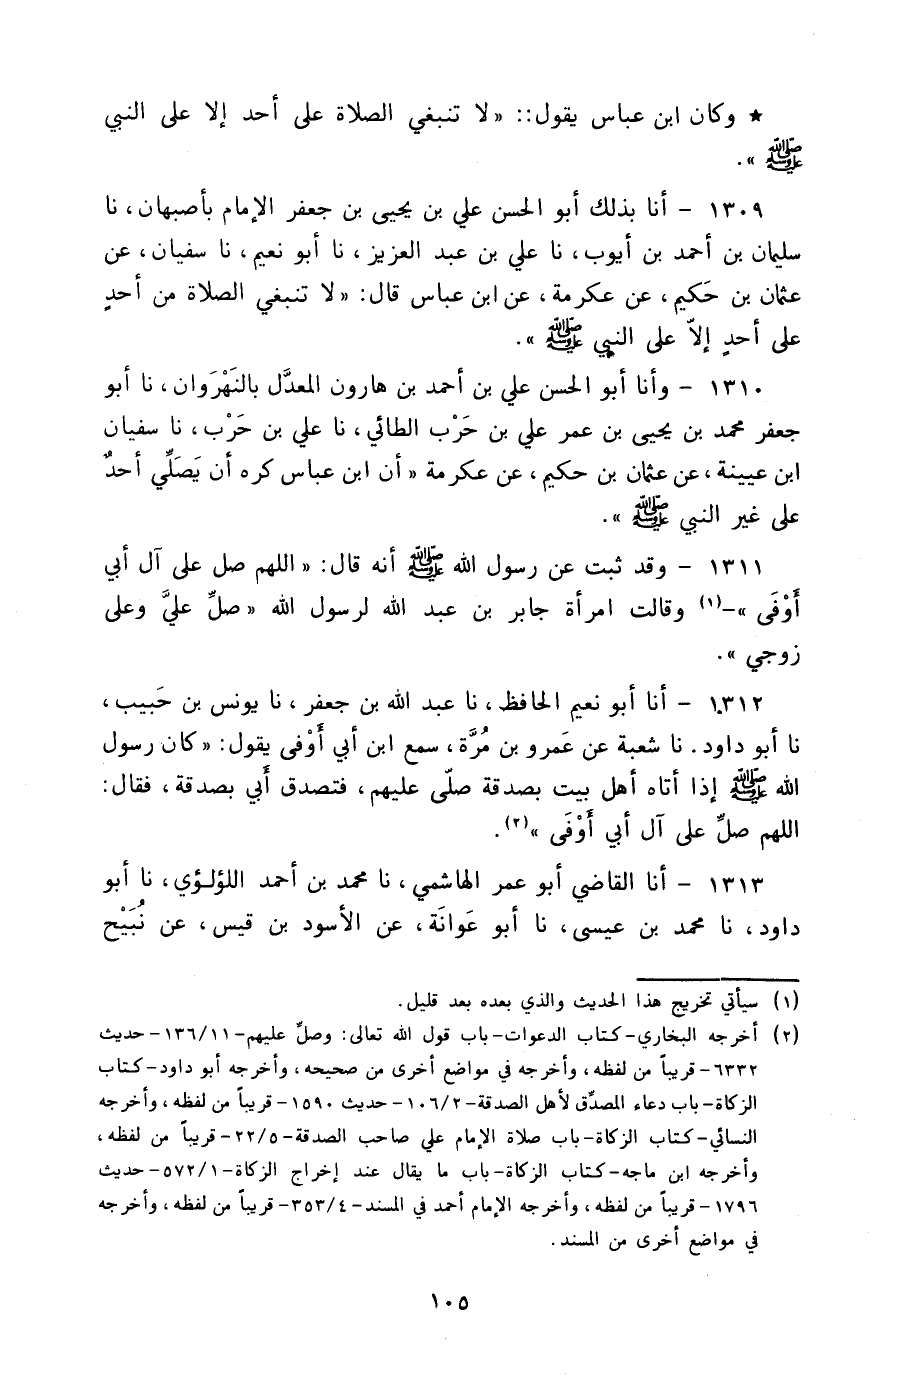 ★ وكان ابن عباس يقول:: « لا تنبغي الصلاة على أحد إلا على النبي
ﷺ ».
١٣٠٩ - أنا بذلك أبو الحسن علي بن يحيى بن جعفر الإمام بأصبهان، نا
سليمان بن أحمد بن أيوب، نا علي بن عبد العزيز، نا أبو نعيم، نا سفيان، عن
عثمان بن حَكيم، عن عكرمة، عن ابن عباس قال: « لا تنبغي الصلاة من أحدٍ
على أحدٍ إلاّ على النبي ﷺ ».
١٣١٠ - وأنا أبو الحسن علي بن أحمد بن هارون المعدَّل بالنَهْرَوان، نا أبو
جعفر محمد بن يحيى بن عمر علي بن حَرْب الطائي، نا علي بن حَرْب، نا سفيان
ابن عيينة، عن عثمان بن حكيم، عن عكرمة « أن ابن عباس كره أن يَصَلِّي أحدٌ
على غير النبي ﷺ ».
١٣١١ - وقد ثبت عن رسول الله ﷺ أنه قال: « اللهم صل على آل أبي
أَوْفَى »-(١) وقالت امرأة جابر بن عبد الله لرسول الله « صلِّ عليَّ وعلى
زوجي ».
١٣١٢ - أنا أبو نعيم الحافظ، نا عبد الله بن جعفر، نا يونس بن حَبيب،
نا أبو داود. نا شعبة عن عَمرو بن مُرَّة، سمع ابن أبي أَوْفى يقول: « كان رسول
الله ﷺ إذا أتاه أهل بيت بصدقة صلّى عليهم، فتصدق أَبي بصدقة، فقال:
اللهم صلِّ على آل أبي أَوْفَى »(٢).
١٣١٣ - أنا القاضي أبو عمر الهاشمي، نا محمد بن أحمد اللؤلؤي، نا أبو
داود، نا محمد بن عيسى، نا أبو عَوانَة، عن الأسود بن قيس، عن نُبَيْح
(١) سيأتي تخريج هذا الحديث والذي بعده بعد قليل.
(٢) أخرجه البخاري-كتاب الدعوات-باب قول الله تعالى: وصلِّ عليهم-١٣٦/١١-حديث
٦٣٣٢-قريباً من لفظه، وأخرجه في مواضع أخرى من صحيحه، وأخرجه أبو داود-كتاب
الزكاة-باب دعاء المصدِّق لأهل الصدقة-١٠٦/٢-حديث ١٥٩٠-قريباً من لفظه، وأخرجه
النسائي-كتاب الزكاة-باب صلاة الإمام علي صاحب الصدقة-٢٢/٥-قريباً من لفظه،
وأخرجه ابن ماجه-كتاب الزكاة-باب ما يقال عند إخراج الزكاة-٥٧٢/١-حديث
١٧٩٦-قريباً من لفظه، وأخرجه الإمام أحمد في المسند-٣٥٣/٤-قريباً من لفظه، وأخرجه
في مواضع أخرى من المسند.
١٠٥